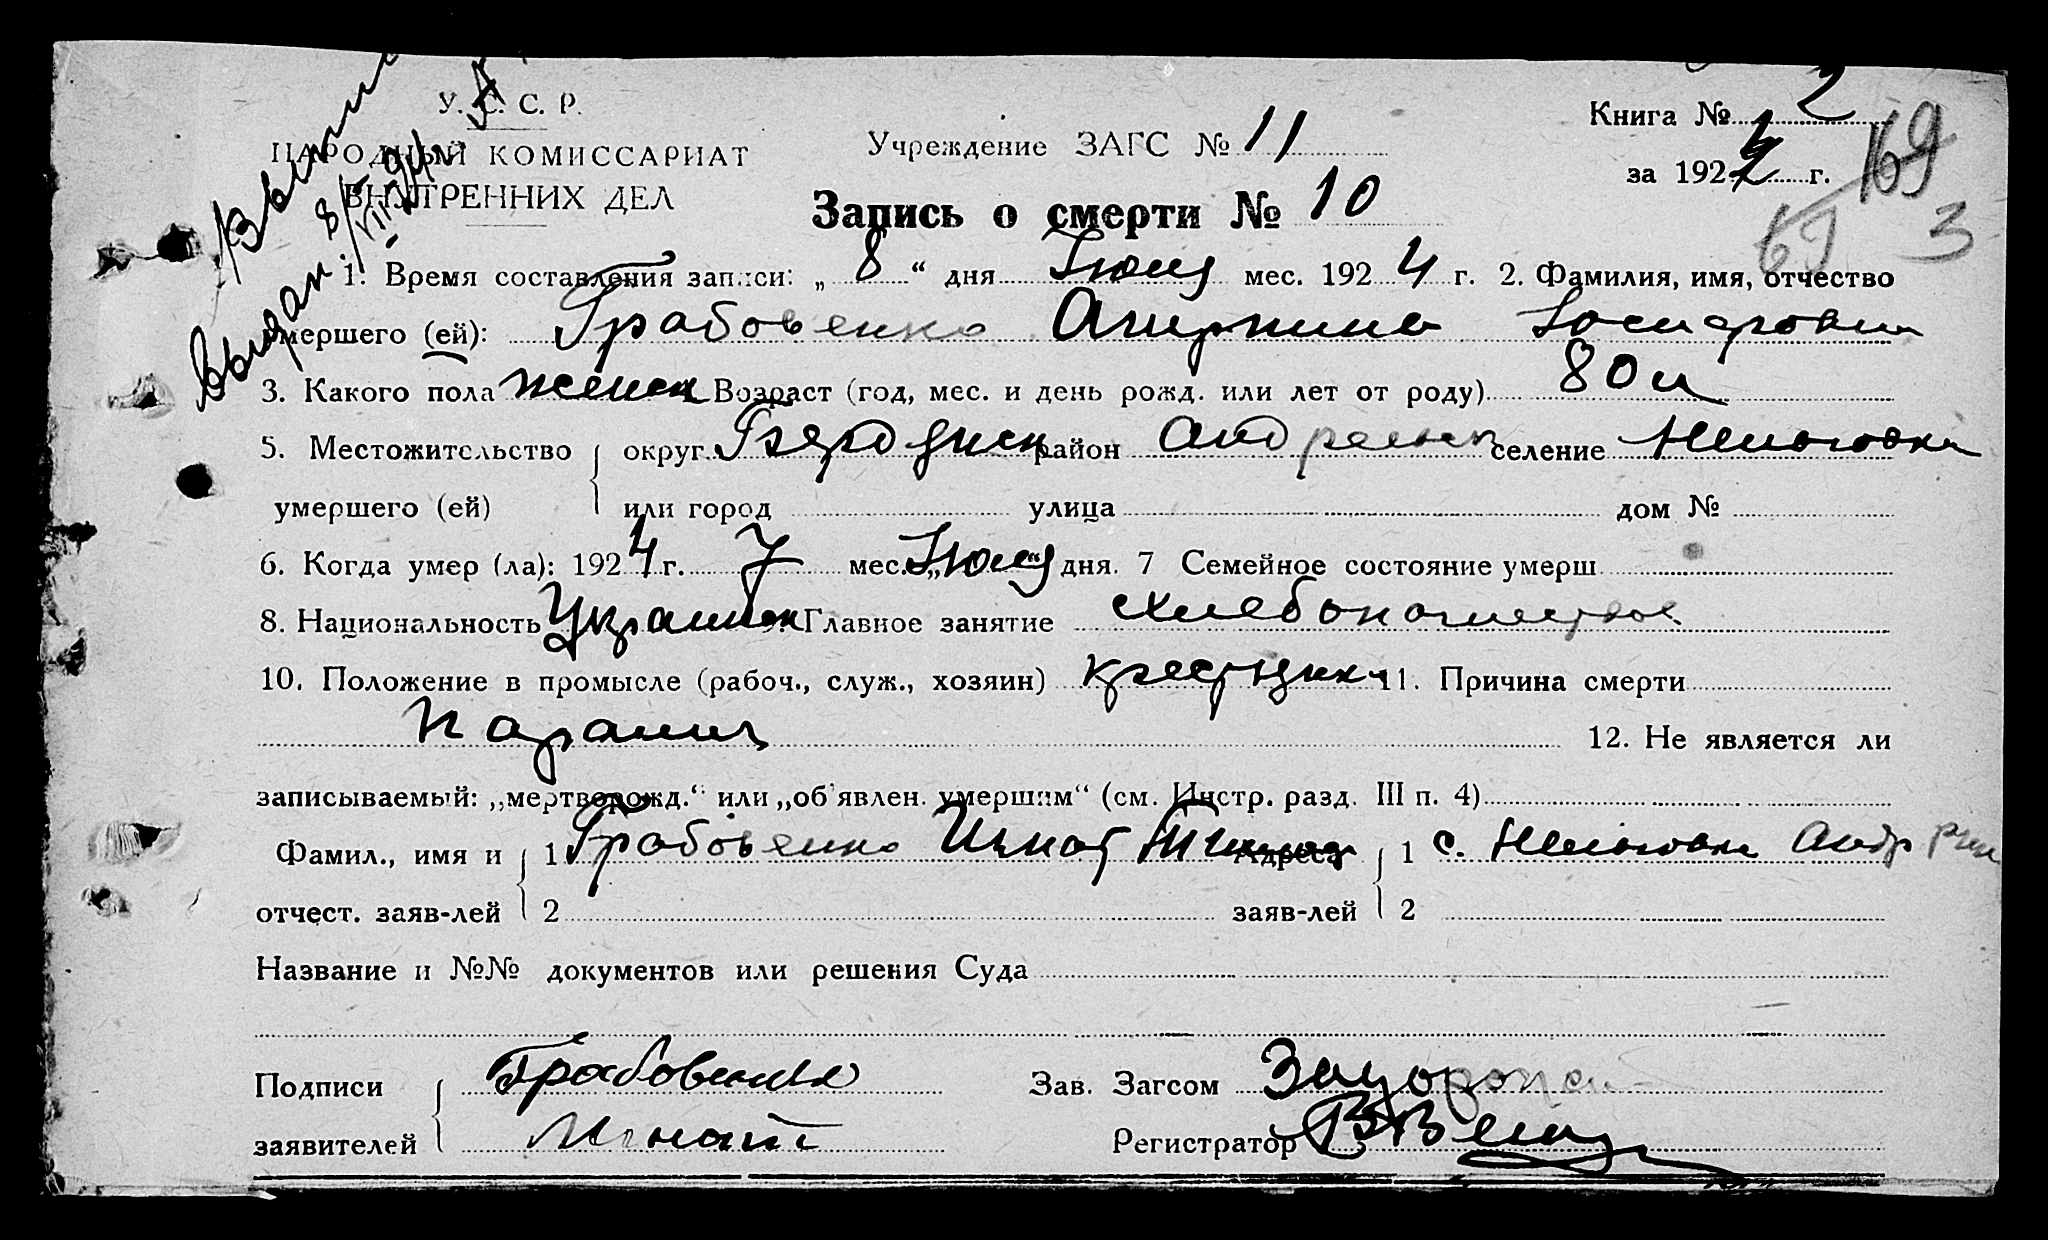 У. С. С. Р.
НАРОДНЫЙ КОМИССАРИАТ
ВНУТРЕННИХ ДЕЛ
Выдан
Учреждение ЗАГС № 11
Книга № 2
за 1924 г.
169
69 3
Запись о смерти № 10
1. Время составления записи: „ 8 “ дня Июня мес. 1924 г. 2. Фамилия, имя, отчество
умершего (ей): Грабовенко
3. Какого пола женск Возраст (год, мес. и день рожд. или лет от роду) 80 л
5. Местожительство округ Бердянск район Андреевск селение
умершего (ей) или город улица дом №
6. Когда умер (ла): 1924 г. 7 мес. „Июня“ дня. 7 Семейное состояние умерш
8. Национальность Украинк 9. Главное занятие хлебопашество
10. Положение в промысле (рабоч., служ., хозяин) 11. Причина смерти
12. Не является ли
записываемый: „мертворожд.“ или „об'явлен. умершим“ (см. Инстр. разд. III п. 4)
Фамил., имя и 1 Грабовенко Игнат Адреса 1 с. Андр
отчест. заяв-лей 2 заяв-лей 2
Название и №№ документов или решения Суда
Подписи Грабовенко Зав. Загсом
заявителей Игнат Регистратор